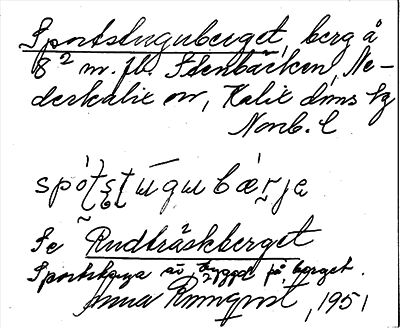 Sportstuguberget, berg å
8² m. fl. Stenbäcken, Ne-
derkalix sn, Kalix dms tg
Norrb. l
spó́tstúgubárja
Se Rudträskberget
Sportstuga är byggd på berget.
Anna Rönnqvist, 1951